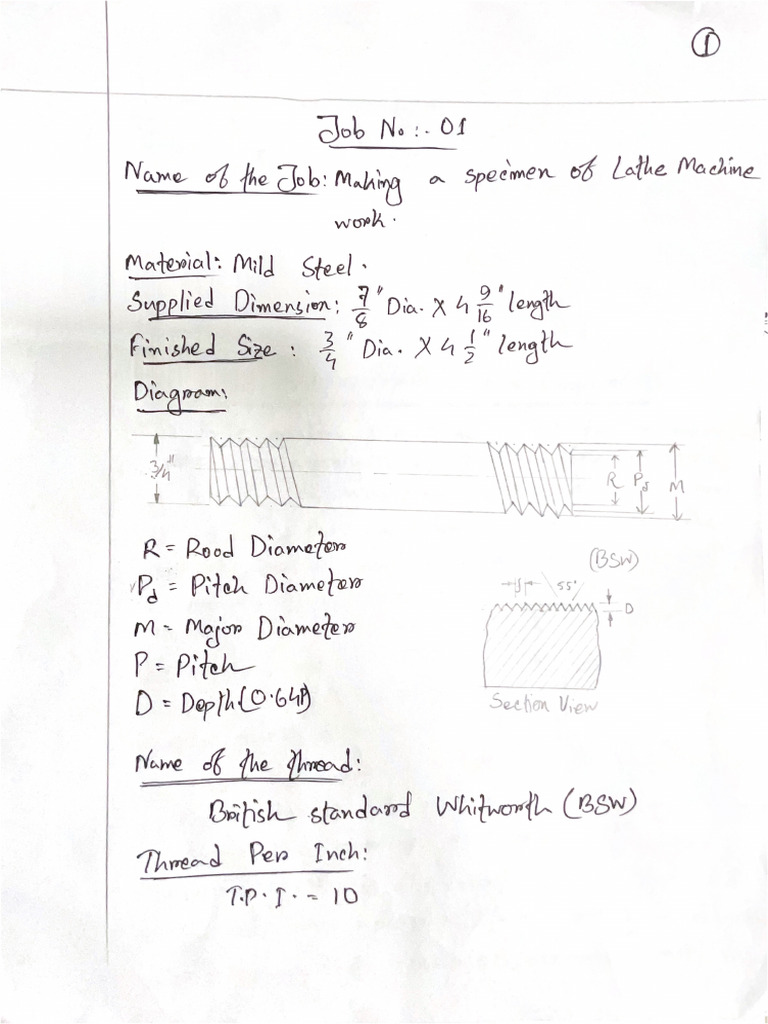 1
Job No:. 01
Name of the Job: Making a specimen of Lathe Machine
work.
Material: Mild Steel.
Supplied Dimension: 7/8" Dia. X 4 9/16" length
Finished Size: 3/4" Dia. X 4 1/2" length
Diagram:
3/4"
R Pd M
R = Rood Diameter
(BSW)
Pd = Pitch Diameter
55°
D
M = Major Diameter
P = Pitch
D = Depth (0.64P)
Section View
Name of the thread:
British standard Whitworth (BSW)
Thread Per Inch:
T.P.I. = 10